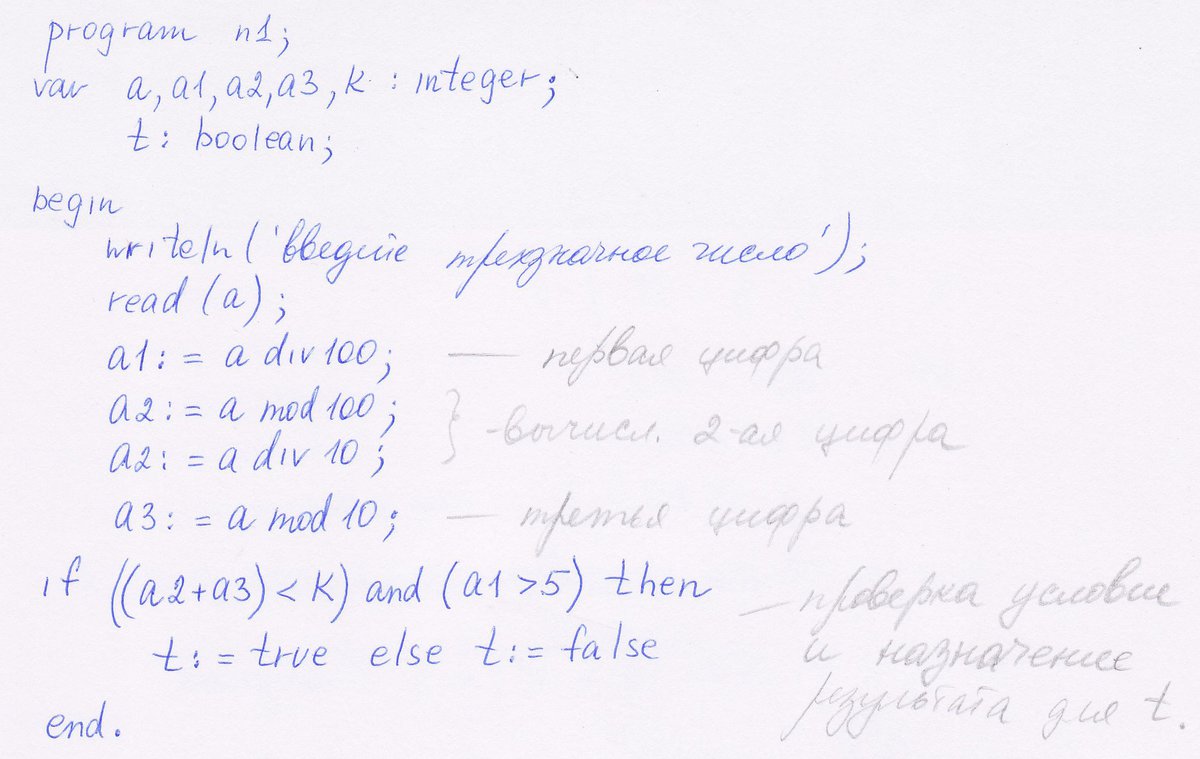 program n1;
var a, a1, a2, a3, k : integer;
t : boolean;
begin
writeln ('введите трехзначное число');
read (a);
a1 := a div 100; — первая цифра
a2 := a mod 100;
a2 := a div 10; } - вычисл. 2-ая цифра
a3 := a mod 10; — третья цифра
if ((a2+a3) < K) and (a1 >5) then — проверка условие
t := true else t := false и назначение
результата для t.
end.